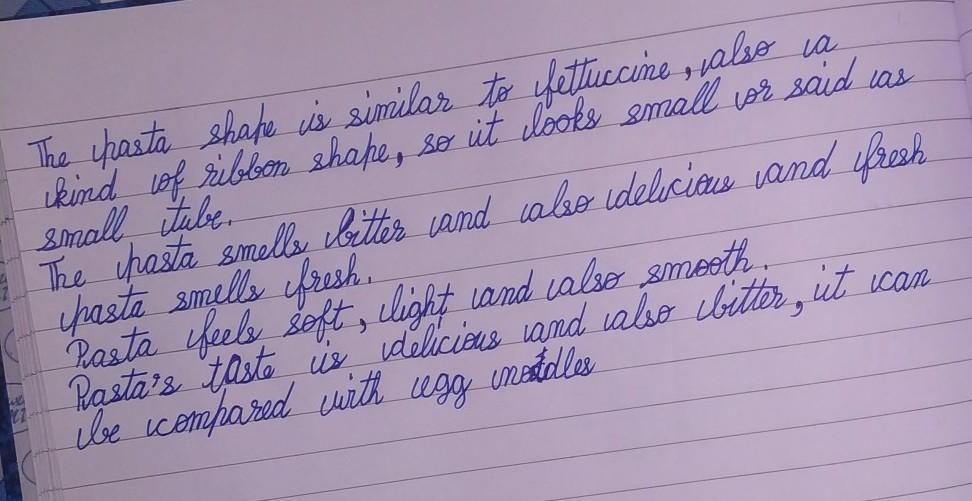 The pasta shape is similar to fettuccine, also a
kind of ribbon shape, so it looks small or said as
small tube.
The pasta smells bitter and also delicious and fresh
pasta smells fresh.
Pasta feels soft, light and also smooth.
Pasta's taste is delicious and also bitter, it can
be compared with egg noodles